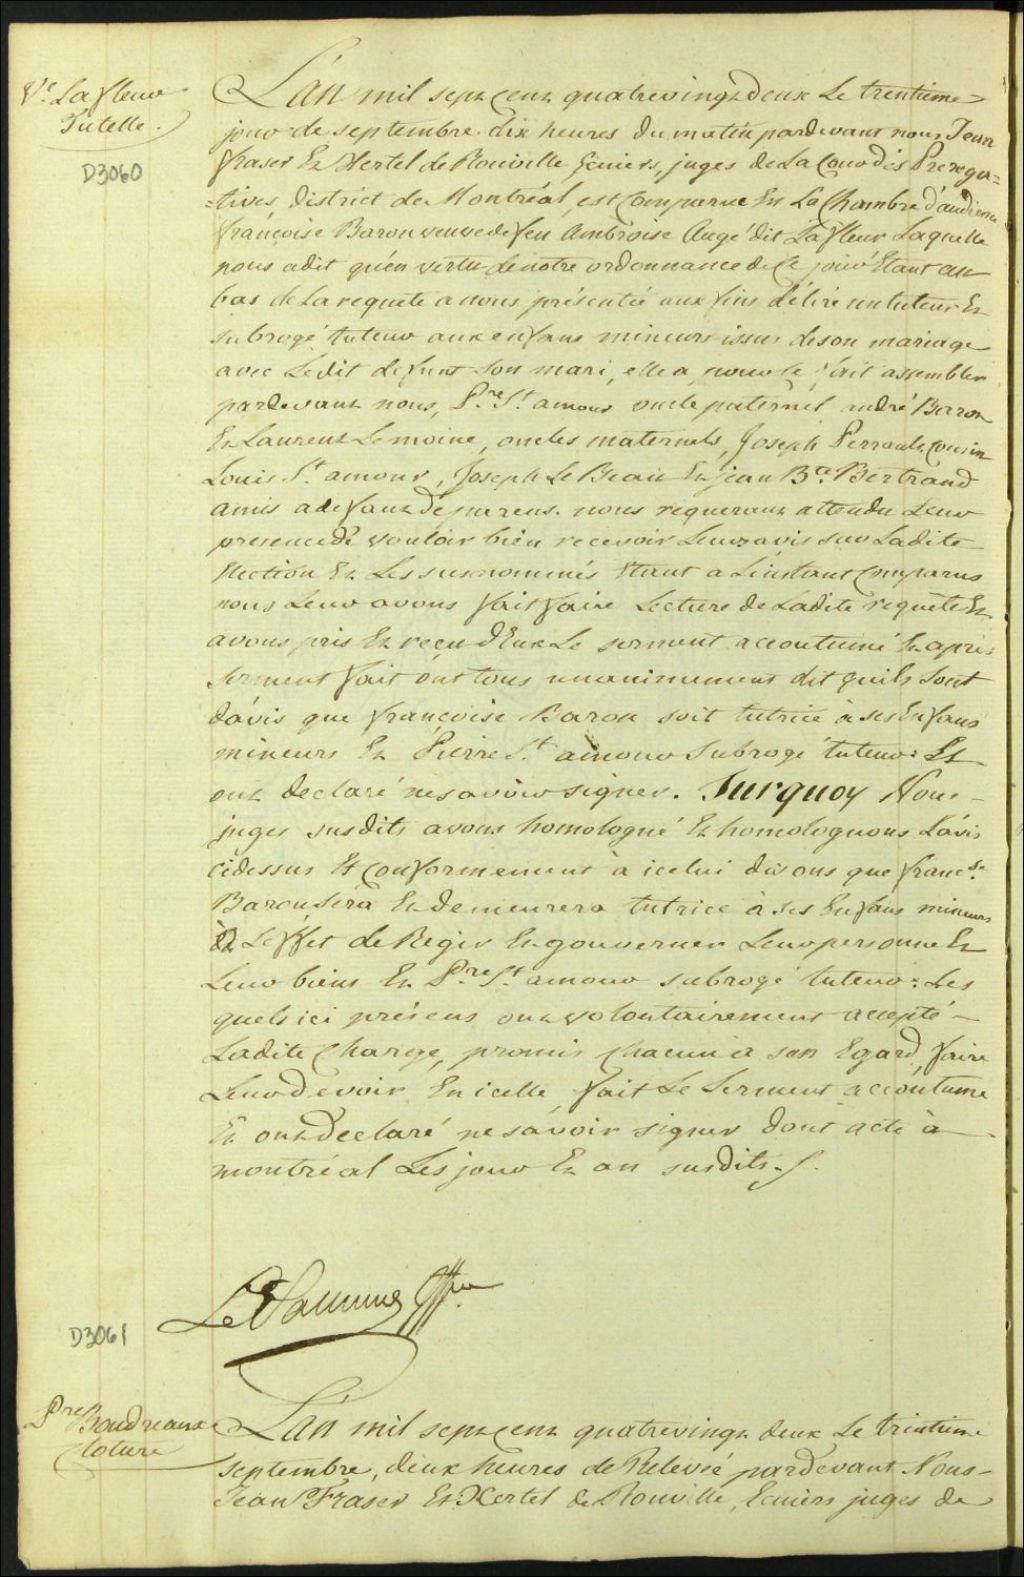 Ve. Lafleur
Tutelle.
D3060
L'an mil sept cent quatrevingt deux Le trentieme
jour de septembre dix heures du matin pardevant nous Jean
fraser Et Hertel de Rouville Ecuiers, juges de La Cour des Preroga=
=tives district de Montréal, est Comparue En La Chambre d'audience
françoise Baron veuve de feu Ambroise Augé dit Lafleur Laquelle
nous a dit qu'en vertu de notre ordonnance de Ce jour Etant au
bas de La requete a nous présentée aux fins d'élire un tuteur Et
subrogé tuteur aux enfans mineurs issus de son mariage
avec Ledit defunt son mari, elle a fait assembler
pardevant nous, P.re S.t amour oncle paternel andré Baron
Et Laurent Lemoine, oncles maternels, Joseph Perrault Cousin
Louis S.t amour, Joseph Le Beau Et jean B.te Bertrand
amis a defaut de parens. nous requerant attendu Leur
presence de vouloir bien recevoir Leurs avis sur Ladite
Election Et Les susnommés Etant a L'instant Comparus
nous Leur avons fait faire Lecture de Ladite requête Et
avons pris Et reçu d'Eux Le serment accoutumé Et après
serment fait ont tous unanimement dit quils sont
d'avis que françoise Baron soit tutrice à ses Enfans
mineurs Et Pierre S.t amour Subrogé tuteur: Et
ont declaré ne savoir signer. Surquoy Nous
juges susdits avons homologué Et homologuons L'avis
cidessus Et Conformement à icelui disons que franc.se
Baron sera Et demeurera tutrice à ses Enfans mineurs
à L'effet de Regir Et gouverner Leur personne Et
Leur biens Et P.re S.t amour subrogé tuteur: Les
quels ici présens ont volontairement accepté
Ladite Charge, promis Chacun a son Egard faire
Leur devoir En icelle, fait Le Serment accoutumé
Et ont declaré ne savoir signer dont acte à
montréal Les jour Et an susdits.
D3061
P.re Boudreaux
Cloture
L'an mil sept cent quatrevingt deux Le trentieme
septembre, deux heures de Relevée pardevant Nous
Jean Fraser Et Hertel de Rouville, Ecuiers juges de